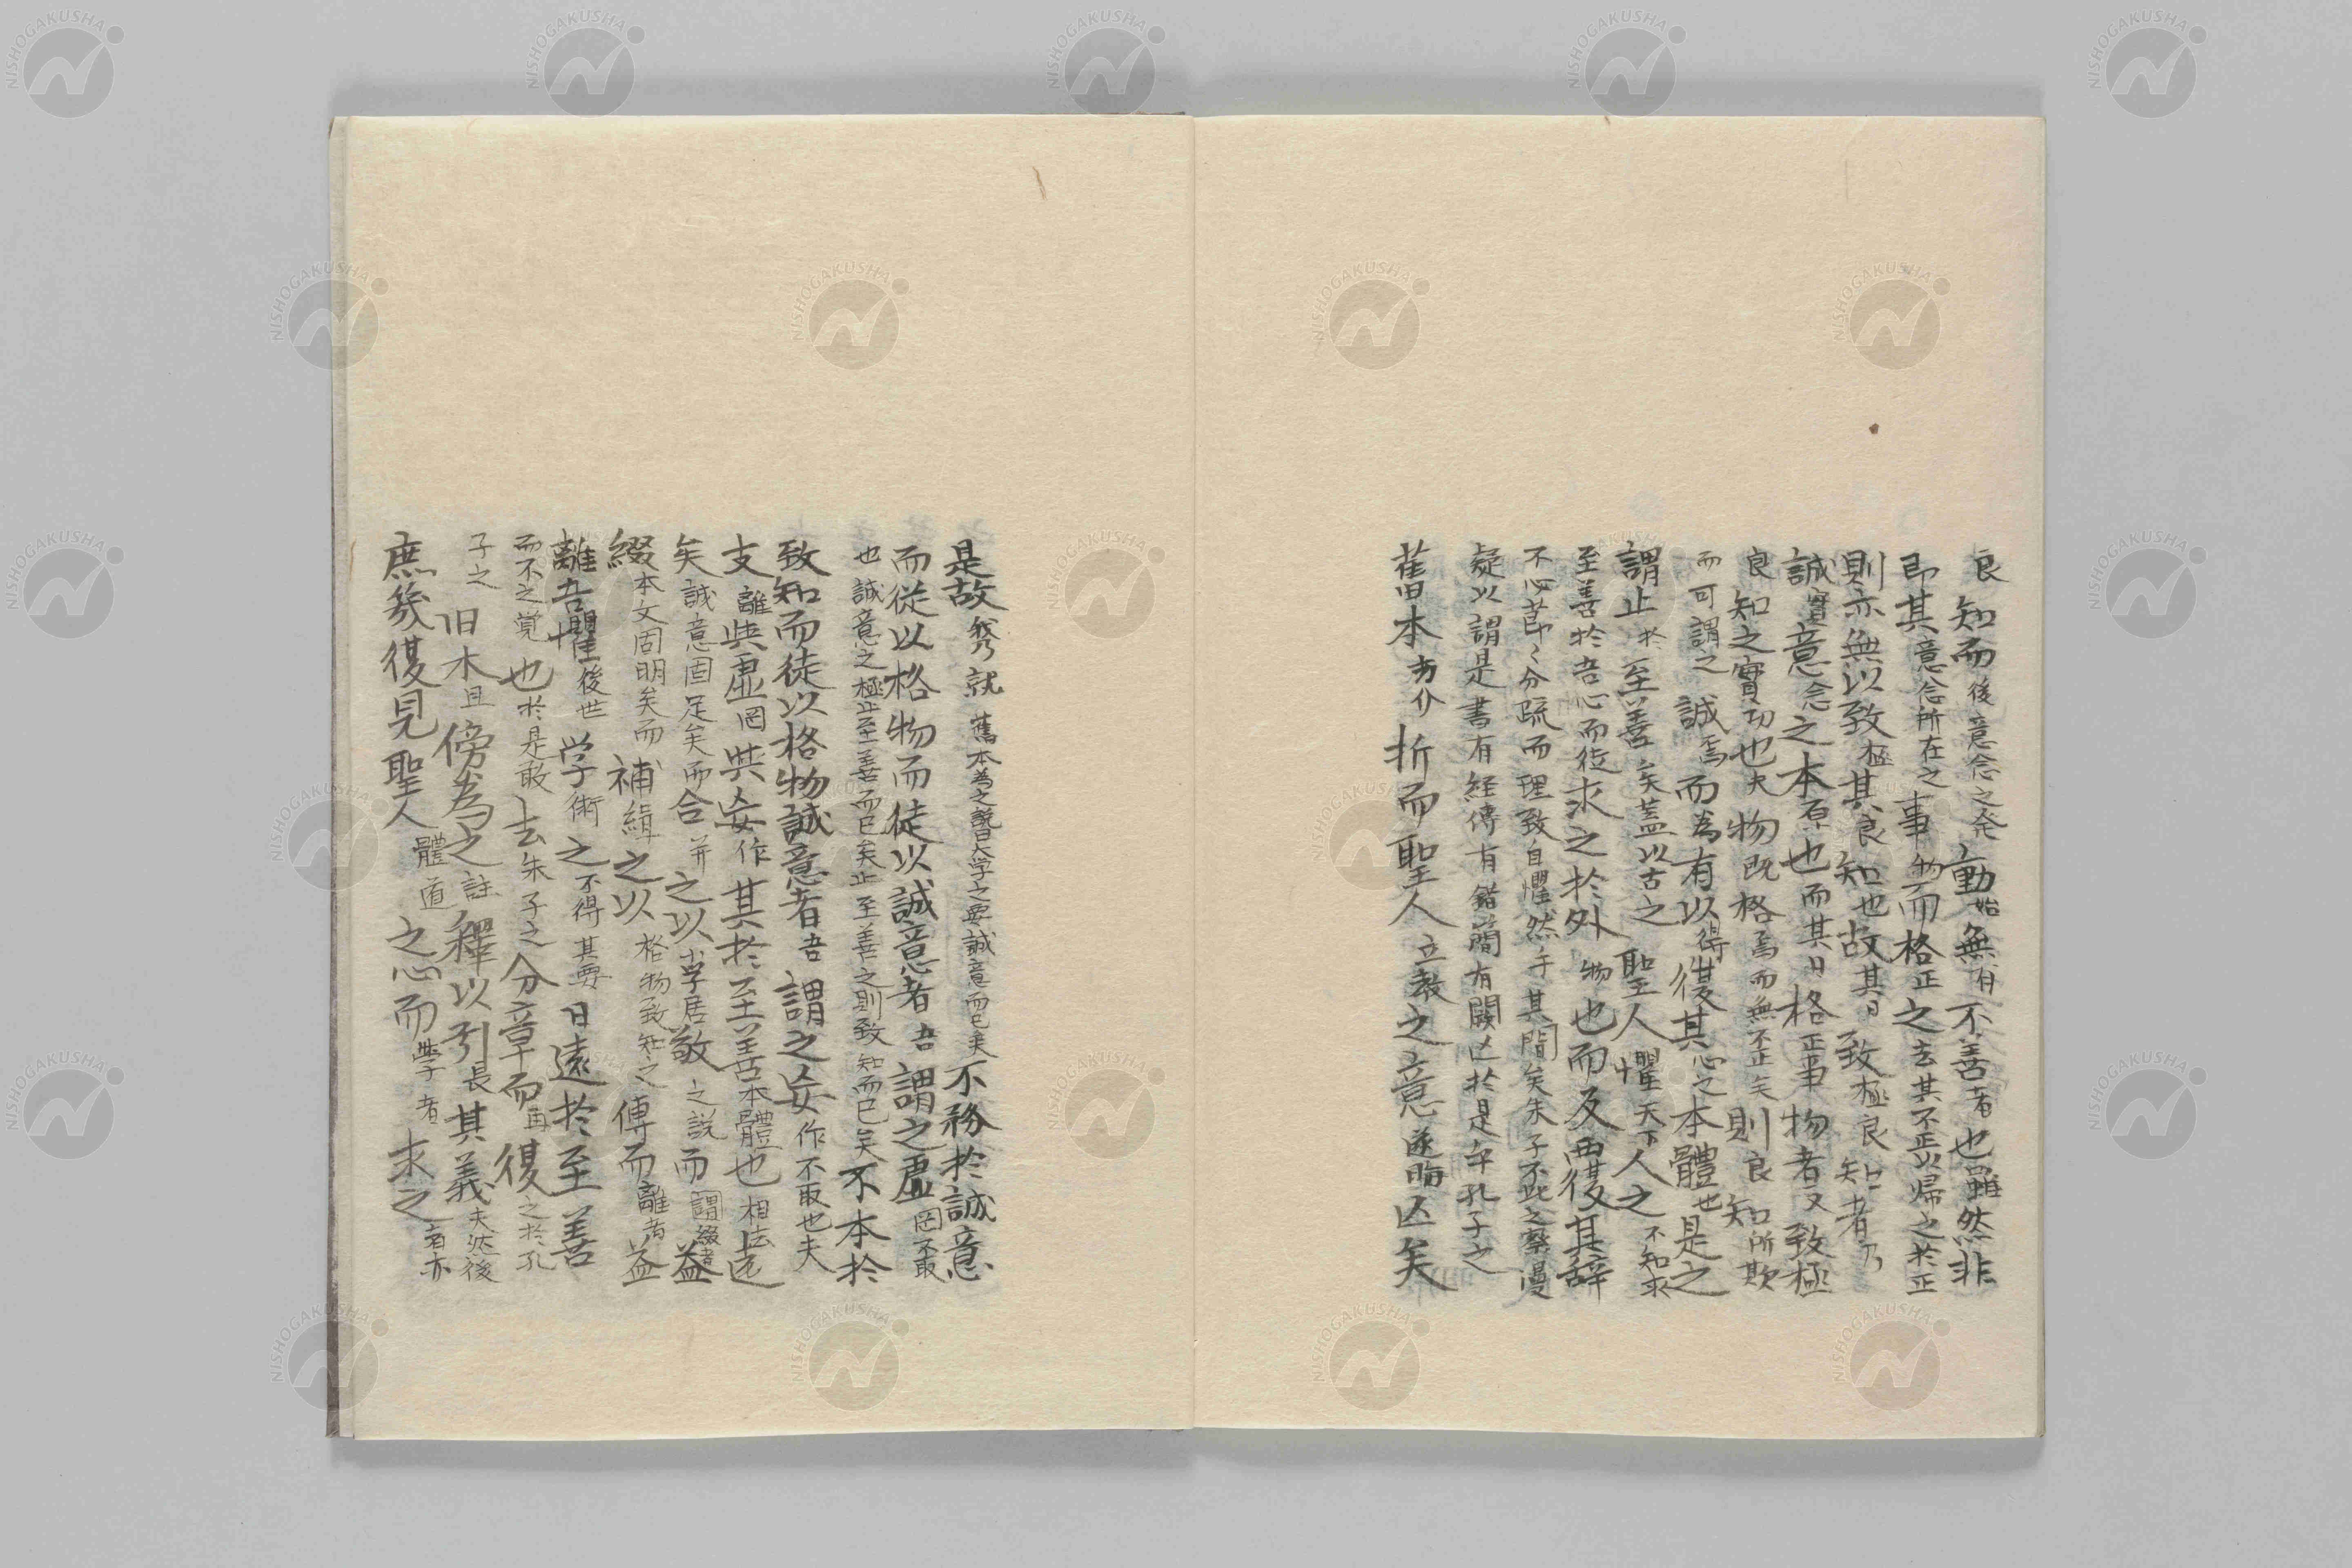 良知而後意念之発動始無有不善者也雖然非
即其意念所在之事物而格正之去其不正以帰之於正
則亦無以致極其良知也故其曰致極良知者乃
誠實意念之本原也而其曰格正事物者又致極
良知之實功也夫物既格焉而無不正矣則良知所欺
而可謂之誠焉而為有以得復其心之本體也是之
謂止於至善矣蓋以古之聖人懼天下人之不知求
至善於吾心而徒求之於外物也而反西復其辞
不心莭〻分疏而理致自懼然乎其間矣朱子不此之察漫
疑以謂是書有経傳有錯簡有闕亾於是乎孔子之
舊本方分折而聖人立教之意遂晦亾矣
是故我乃就舊本為之說曰大学之要誠意而已矣不務於誠意
而従以格物而徒以誠意者吾謂之虚罔不取
也誠意之極止至善而已矣止至善之則致知而已矣不本於
致知而徒以格物誠意者吾謂之妄作不取也夫
支離與虚罔與妄作其於至善本體也相去遠
矣誠意固足矣而合并之以小学居敬之説而謂綴者益
綴本文固明矣而補緝之以格物致知之傅而離者益
離吾懼後世学術之不得其要日遠於至善
而不之覚也於是敢去朱子之分章而再復之於孔
子之旧木且傍為之註釋以引長其義夫然後
庶幾復見聖人體道之心而學者求之者亦
NISHOGAKUSHA